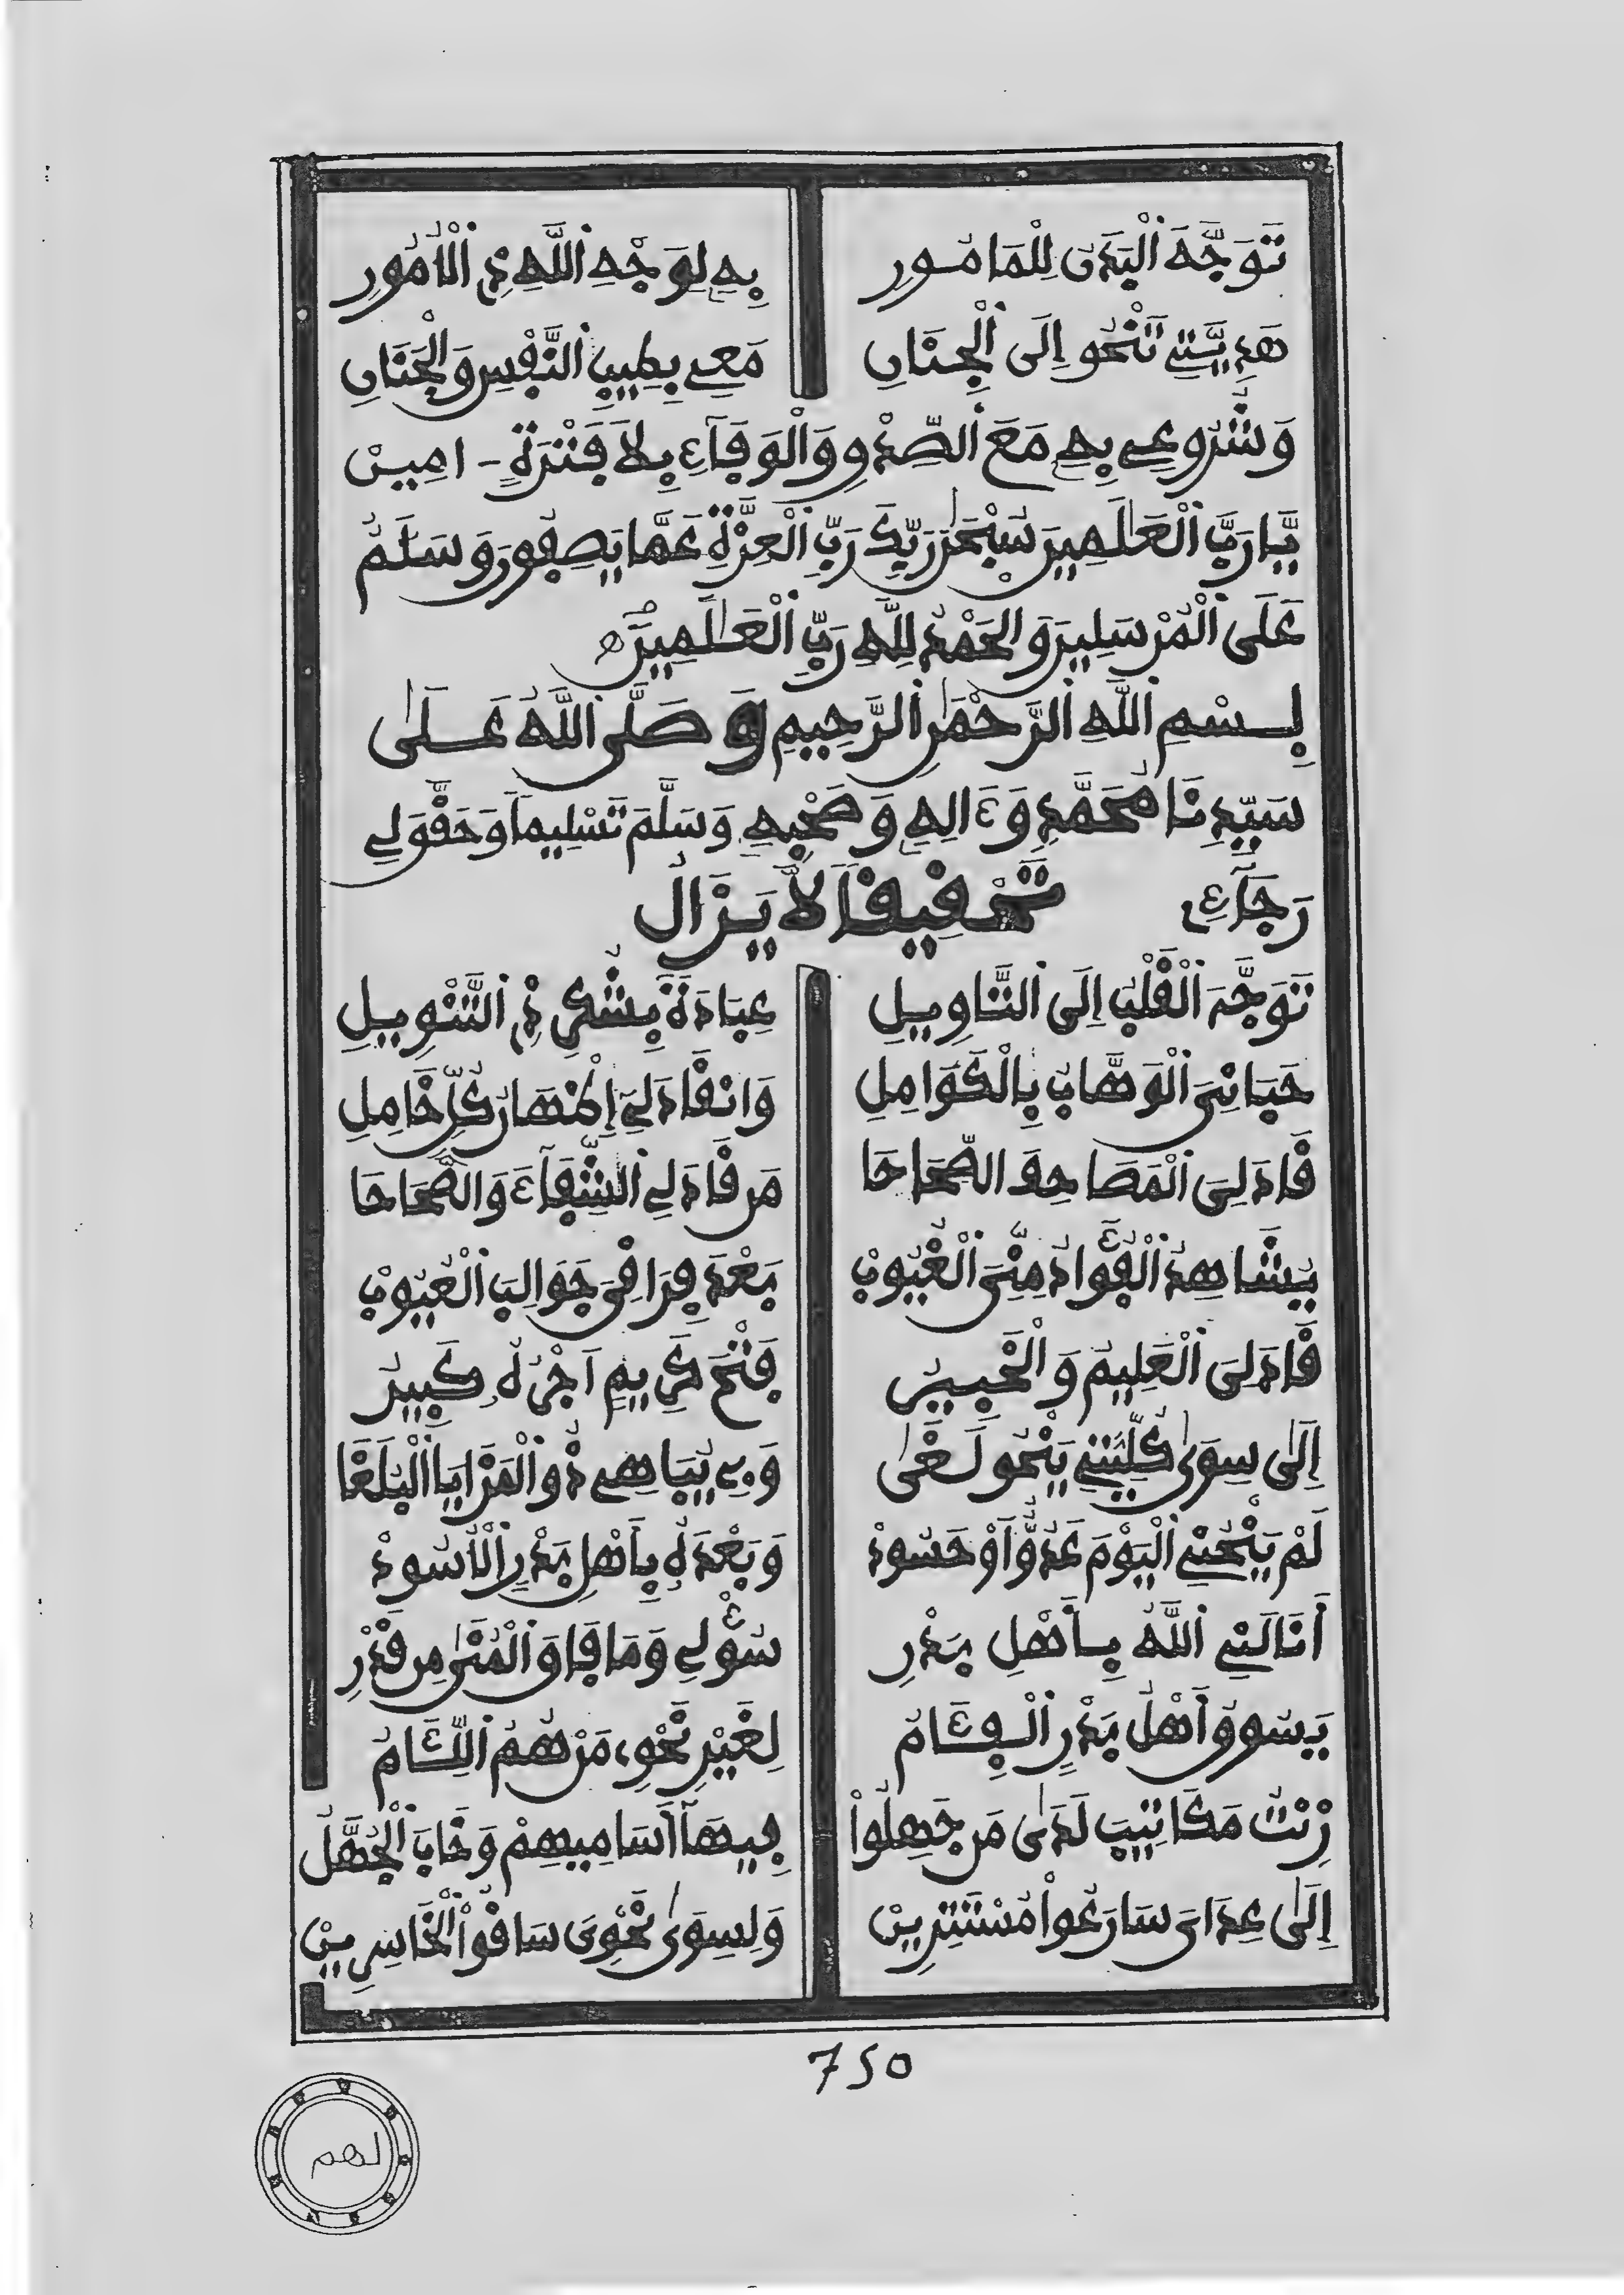 تَوَجَّهَ الْيَدَى لِلْمَامُورِ بِهِ لِوَجْهِ اللَّهِ فِي الْأُمُورِ
هَدِيَّتِي تَنْحُو إِلَى الْجِنَانِ مَعِي بِطِيبِ النَّفْسِ وَالْجَنَانِ
وَشُرُوعِي بِهِ مَعَ الصِّدْقِ وَالْوَفَآءِ بِلَا فَتْرَةٍ - امِينْ
يَّارَبَّ الْعَلَمِينَ سُبْحَنَ رَبِّكَ رَبِّ الْعِزَّةِ عَمَّا يَصِفُونَ وَسَلَمٌ
عَلَى الْمُرْسَلِينَ وَالْحَمْدُ لِلَّهِ رَبِّ الْعَلَمِينَ
بِسْمِ اللَّهِ الرَّحْمَنِ الرَّحِيمِ وَصَلَّى اللَّهُ عَلَى
سَيِّدِنَا مُحَمَّدٍ وَءَالِهِ وَصَحْبِهِ وَسَلَّمَ تَسْلِيماً وَحَقَّقَ لِي
رَجَآءِي تَحْقِيقاً لَّا يَزَالُ
تَوَجَّهَ الْقَلْبُ إِلَى التَّاوِيلِ عِبَادَةً بِشُكْرِ فِي التَّنْوِيلِ
حَبَانِيَ الْوَهَّابُ بِالْكَوَامِلِ وَانْقَادَ لِي إِظْهَارُ كُلِّ خَامِلِ
قَادَ لِيَ الْمَصَاحِفَ الصِّحَاحَا مَن قَادَ لِي الشِّفَآءَ وَالصِّحَاحَا
يُشَاهِدُ الْفُؤَادُ مِنِّيَ الْغُيُوبْ بَعْدَ فِرَاقِيَ جَوَالِبَ الْعُيُوبْ
قَادَ لِيَ الْعَلِيمُ وَالْخَبِيرُ فَتْحَ كَرِيمٍ أَجْرُهُ كَبِيرُ
إِلَى سِوَى كُلِّيَّتِي يَنْحُو لَغَى وَبِي يُبَاهِي ذُو الْمَزَايَا الْبُلَغَا
لَمْ يَنْحُنِي الْيَوْمَ عَدُوٌّ أَوْ حَسُودْ وَبَعْدَهُ بِأَهْلِ بَدْرٍ الْأُسُودْ
أَنَالَنِي اللَّهُ بِأَهْلِ بَدْرِ سُؤْلِي وَمَا فَاقَ الْمُنَى مِن قَدْرِ
يَسُوقُ أَهْلُ بَدْرٍ الْفِئَامُ لِغَيْرِ نَحْوِي مَنْ هُمُ اللِّئَامُ
زِنْتُ مَكَاتِيبَ لَدَى مَن جَهِلُواْ فِيهَا أَسَامِيهِمْ وَخَابَ الْجُهَّلُ
إِلَى عِدَايَ سَارَعُواْ مُسْتَتِرِينْ وَلِسِوَى نَحْوِيَ سَاقُواْ الْخَاسِرِينْ
750
لهم